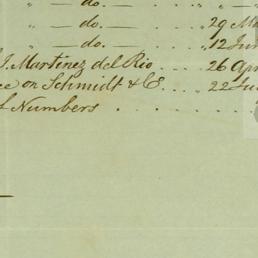 " — do. — " — "
" — do. — . . . 29 Ma
" — do. — . . . 12 Jun
J. Martinez del Rio . . . . 26 Apr
ce on Schmidt & C. . . . 22 Ju
of Numbers . . . . . .